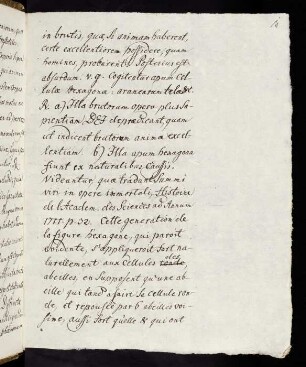 in brutis, quæ si animam haberent,
certe excellentiorem possidere, quam
homines, probarentur. Posterius est
absurdum. v. g. Cogitetur apum cel-
lulæ hexagona: aranearum tela &c.
R. a) Illa brutorum opera plus sa-
pientiam DEI deprædicant, quam
ut indicent brutorum animæ excel-
lentiam. b) Illa apum hexagona
fiunt ex naturalibus causis.
Videantur, quæ tradunt summi
viri in opere immortali, Histoire
de l'Academ. des Sciences ad annum
p. 32. Cette generation de
la figure hexagone, qui paroit
evidente, s'appliqueroit fort na-
turellement aux cellules des
abeilles, en supposent qu'une ab-
eille qui tand a faire sa cellule ron-
de, est repousée par 6 abeilles voi-
sine, aussi fort qu'elle & qui ont